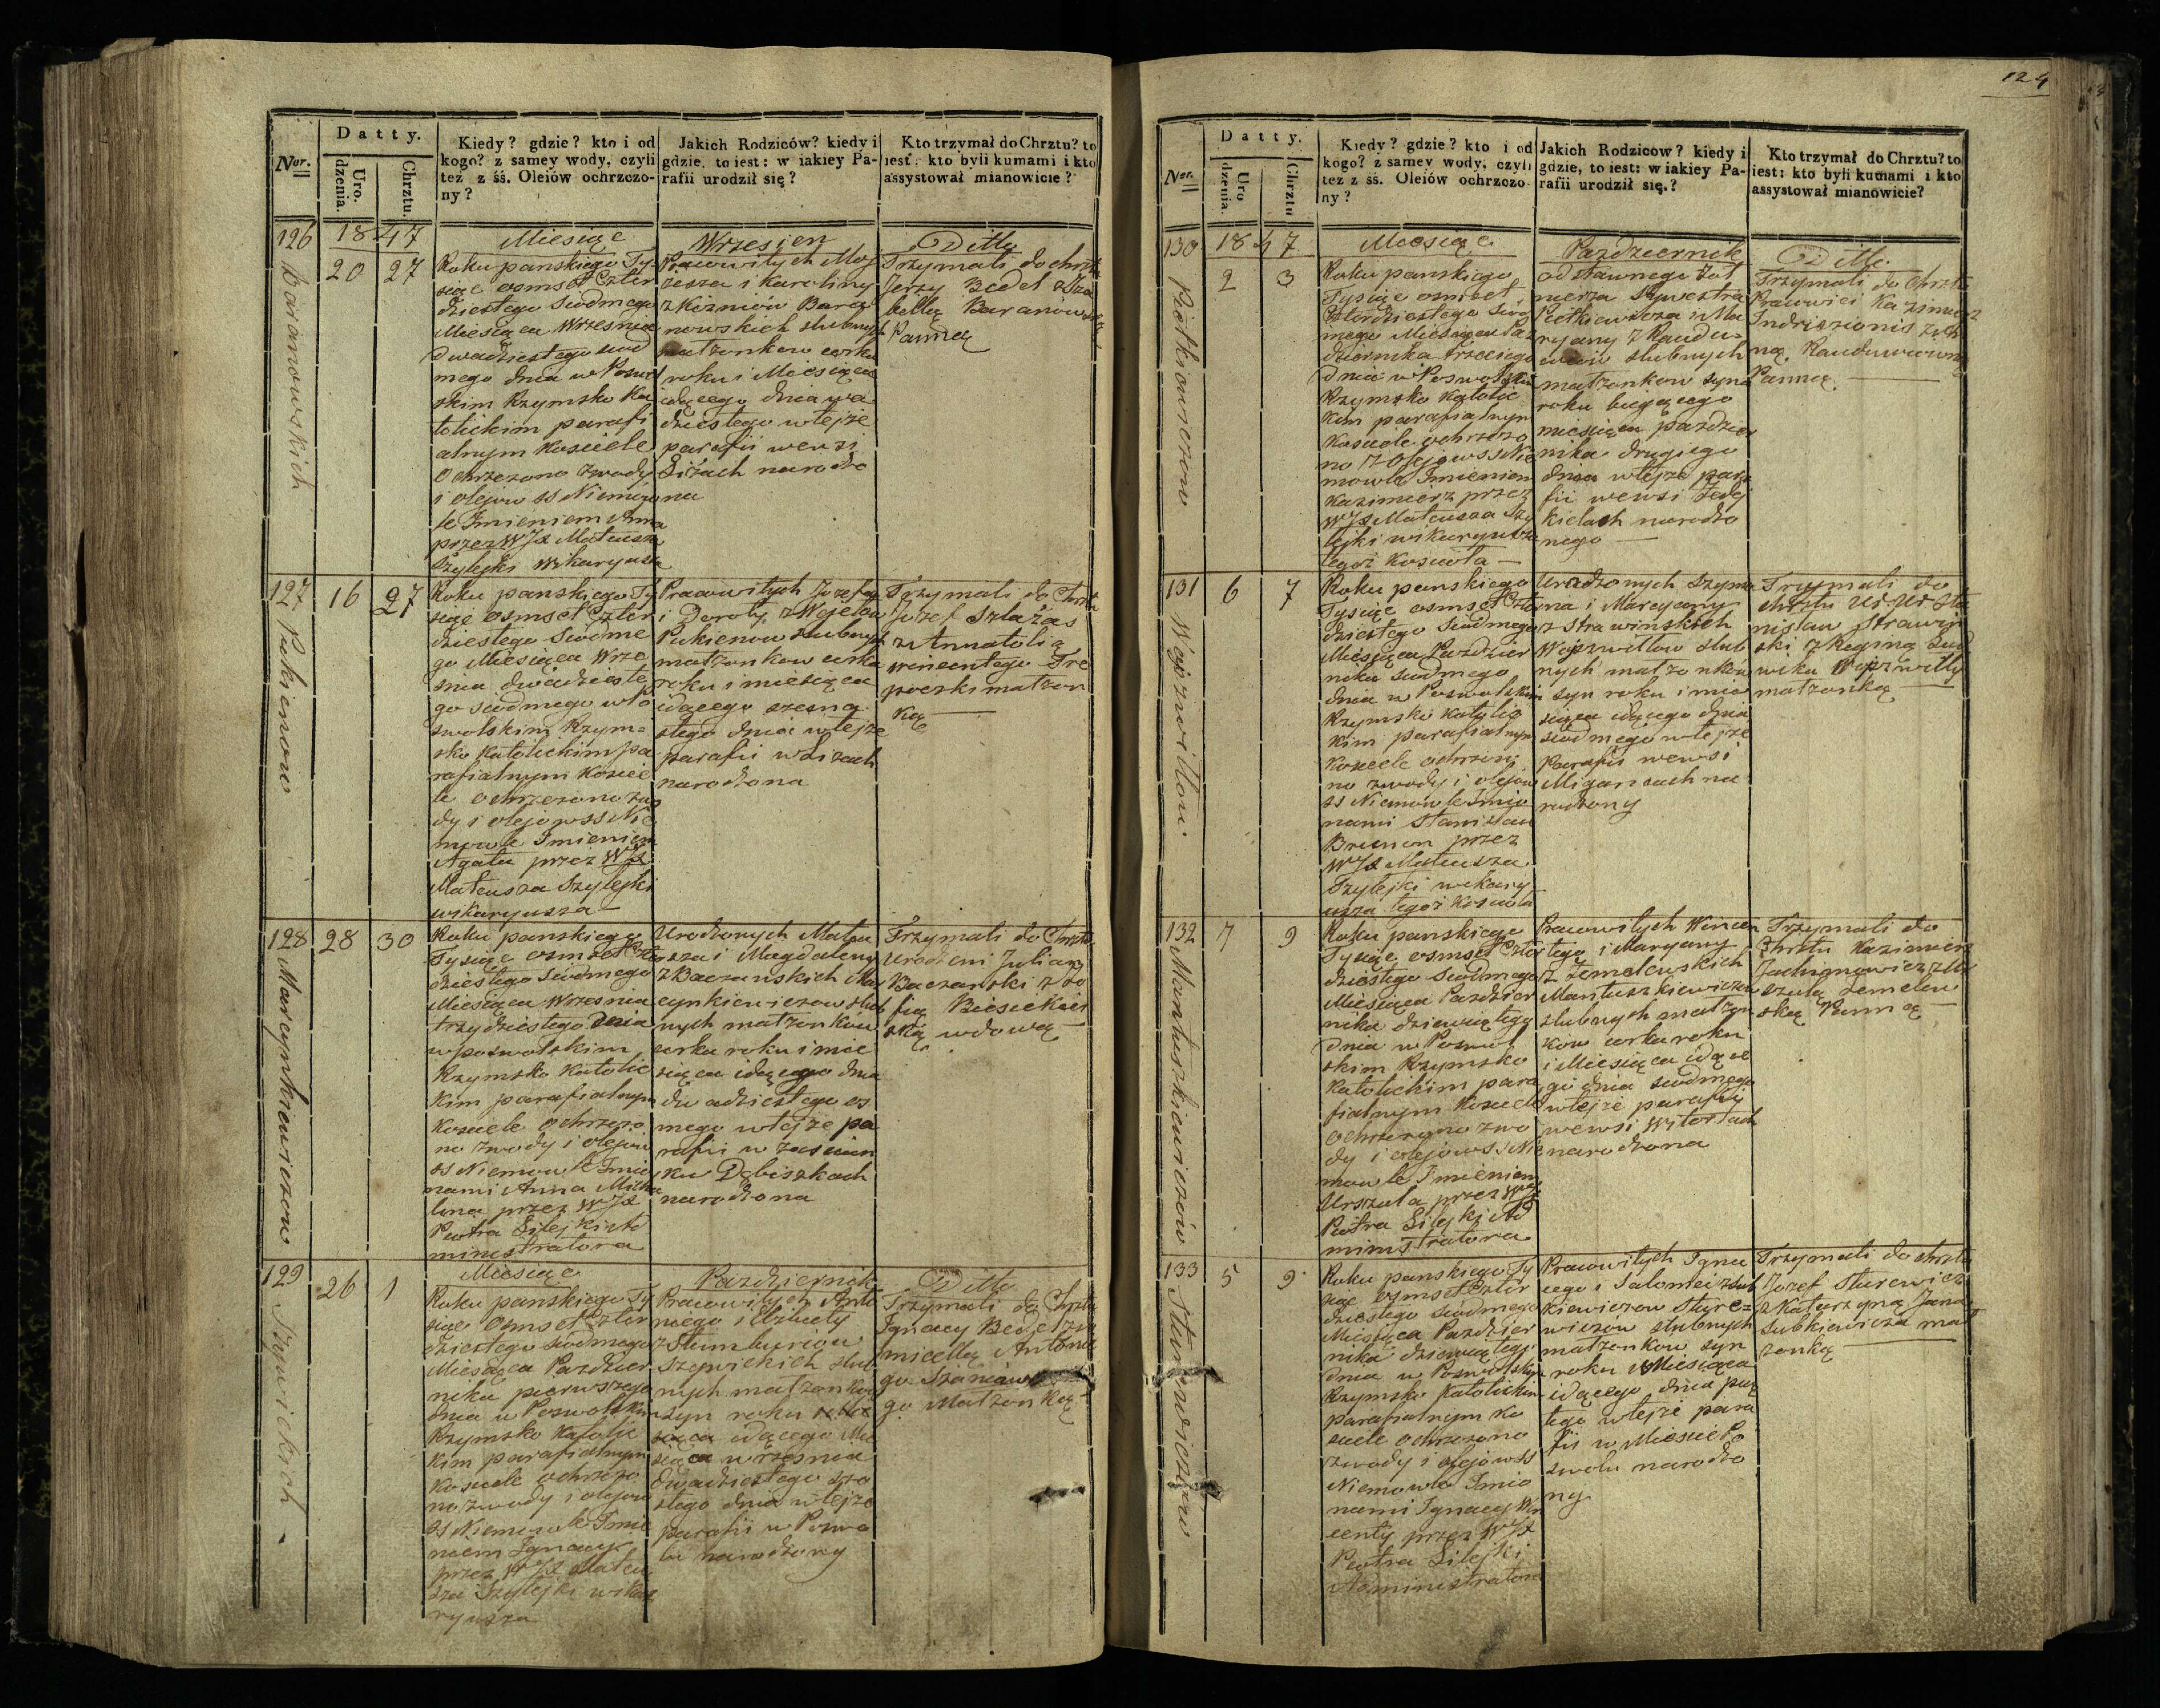 124
Nor.
Datty.
Uro. dzenia.
Chrztu.
Kiedy? gdzie? kto i od
kogo? z samey wody, czyli
też z śś. Oleiów ochrzczo-
ny?
Jakich Rodziców? kiedy i
gdzie, to iest: w iakiey Pa-
rafii urodził się?
Kto trzymał do Chrztu? to
iest: kto byli kumami i kto
assystował mianowicie?
126
Baranowskich
1847
20 27
Miesiąc
Roku panskiego Ty
siąc osmset Czter
dziestego Siodmego
Miesiąca Wrzesnia
Dwadziestego siod
mego dnia w Poswol
skim Rzymsko Ka
tolickim parafi
alnym Kosciele
Ochrzczono zwody
i olejow SS Niemow
le Imieniem Anna
przez WJX Mateusza
Szylejki Wikaryusza
Wrzesien
Pracowitych Moj
zesza i Karoliny
z Kizniow Bara
nowskich slubnych
małzonkow corka
roku i Miesiąca
idącego dnia dwa
dziestego wtejże
parafii wewsi
Liżach narodzo
na
Ditto
Trzymali do chrztu
Jerzy Bedel z Iza
bellą Baranows
Panną
127
Pukienow
16 27
Roku panskiego Ty
siąc osmset Czter
dziestego Siodme
go Miesiąca Wrze
snia dwadzieste
go siodmego w Po
swolskim Rzym-
sko Katolickim pa
rafialnym Koscie
le ochrzczono zwo
dy i olejow SS Nie
mowle Imieniem
Agata przez WJX
Mateusza Szylejki
wikaryusza
Pracowitych Jozefa
i Doroty z Wojelow
Pukienow slubnych
małzonkow corka
roku i miesiąca
idącego szesna
stego dnia wtejże
parafii w Lizach
narodzona
Trzymali do Chrztu
Jozef Szlażas
z Annatolią
Wincentego Tre
poski małzon
ką
128
Marcynkiewiczow
28 30
Roku panskiego
Tysiąc osmset Czter
dziestego siodmego
Miesiąca Wrzesnia
trzydziestego Dnia
w poswolskim
Rzymsko Katolic
kim parafialnym
Kosciele Ochrzczo
no zwody i olejow
SS Niemowle Imio
nami Anna Micha
lina przez WJX
Piotra Lilejki Ad
ministratora
Urodzonych Mateu
sza i Magdaleny
z Baczanskich Mar
cynkiewiczow slub
nych małzonkow
corka roku i mie
siąca idącego dnia
dwadziestego os
mego wtejże pa
rafii w zascian
ku Dębiszkach
narodzona
Trzymali do Chrztu
urodzeni Julian
Baczanski z Zo
fią Biesiekier
ską wdową
129
Szywickich
26 1
Miesiąc
Roku panskiego Ty
siąc osmset Czter
dziestego siodmego
Miesiąca Pazdzier
nika pierwszego
dnia w Poswolskim
Rzymsko Katolic
kim parafialnym
Kosciele ochrzczo
no zwody i olejow
SS Niemowle Imie
niem Ignacy
przez WJX Mateu
sza Szylejki wika
ryusza
Pazdziernik
Pracowitych Anto
niego i Elżbiety
z Stumburiow
Szywickich slub
nych małzonkow
syn roku
idącego Mie
siąca wrzesnia
Dwadziestego szo
stego dnia wtejże
parafii w Poswo
lu narodzony
Ditto
Trzymali do Chrztu
Ignacy Bedel z
micellą Antonie
go
go Małzonką
Nor.
Datty.
Uro dzenia.
Chrztu
Kiedy? gdzie? kto i od
kogo? z samey wody, czyli
też z śś. Oleiów ochrzczo-
ny?
Jakich Rodziców? kiedy i
gdzie, to iest: w iakiey Pa-
rafii urodził się?
Kto trzymał do Chrztu? to
iest: kto byli kumami i kto
assystował mianowicie?
130
Piotkiewiczow
1847
2 3
Miesiąc
Roku panskiego
Tysiąc osmset
Czterdziestego Siod
mego Miesiąca Paz
dziernika trzeciego
Dnia w Poswolskim
Rzymsko Katolic
kim parafialnym
Kosciele ochrzczo
no z Olejow SS Nie
mowle Imieniem
Kazimierz przez
WJX Mateusza Szy
lejki wikaryusza
tegoż Koscioła
Pazdziernik
od stawnego Zoł
nierza Sylwestra
Piotkiewicza i Ma
ryany z Raudu
wiow slubnych
małzonkow syna
roku bieżącego
miesiąca pazdzier
nika drugiego
dnia wtejże para
fii wewsi Zedej
kielach narodzo
nego
Ditto
Trzymali do Chrztu
Pracowici Kazimierz
Indriszionis z
ną Rauduwowną
Panną
131
Wojznowiłłow
6 7
Roku panskiego
Tysiąc osmset Czter
dziestego siodmego
Miesiąca Pazdzier
nika siodmego
dnia w Poswolskim
Rzymsko Katolic
kim parafialnym
Kosciele ochrzczo
no zwody i olejow
SS Niemowle Imio
nami Stanisław
Brunon przez
WJX Mateusza
Szylejki wikary
usza tegoż Koscioła
Urodzonych Szymo
na i Marcyanny
z Strawinskich
Wojzwiłłow slub
nych małzonkow
syn roku i mie
siąca idącego dnia
siodmego wtejże
Parafii wewsi
Migansach na
rodzony
Trzymali do
chrztu Ur. Ur. Sta
nisław Strawin
ski z Reginą Lud
wika Wojzwiłły
małzonką
132
Mantuszkiewiczow
7 9
Roku panskiego
Tysiąc osmset Czter
dziestego siodmego
Miesiąca Pazdzier
nika dziewiątego
dnia w Poswol
skim Rzymsko
Katolickim para
fialnym Kosciele
ochrzczono zwo
dy i olejow SS Nie
mowle Imieniem
Urszula przez WJX
Piotra Lilejki Ad
ministratora
Pracowitych Wincen
tego i Maryanny
z Zemelewskich
Mantuszkiewiczow
slubnych małzon
kow corka roku
i Miesiąca idące
go dnia siodmego
wtejże parafii
wewsi Witortach
narodzona
Trzymali do
Chrztu Kazimierz
Juchniewicz z Ur
szulą Zemelew
ską Panną
133
Sturewiczow
5 9
Roku panskiego Ty
siąc osmset Czter
dziestego siodmego
Miesiąca Pazdzier
nika dziewiątego
dnia w Poswolskim
Rzymsko Katolickim
parafialnym Ko
sciele ochrzczono
zwody i olejow SS
Niemowle Imio
nami Ignacy Win
centy przez WJX
Piotra Lilejki
Administratora
Pracowitych Igna
cego i Salomei z Sub
kiewiczow Sture-
wiczow slubnych
małzonkow syn
roku i Miesiąca
idącego dnia pią
tego wtejże para
fii w Miescie Po
swolu narodzo
ny
Trzymali do chrztu
Jozef Sturewicz
z Katarzyną Jana
Subkiewicza mał
zonką